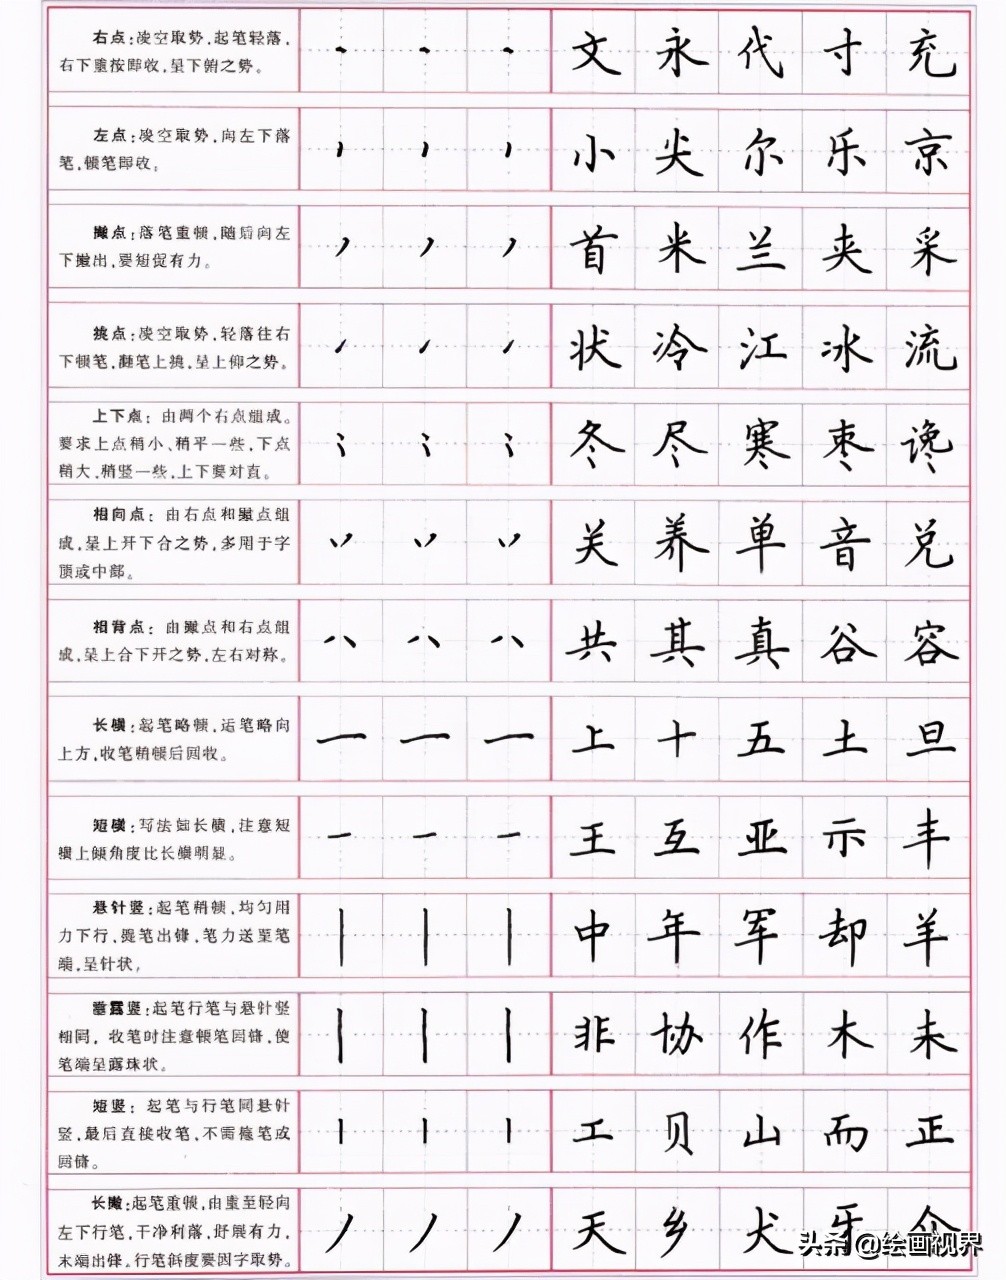 右点：凌空取势，起笔轻落，
右下重按即收，呈下俯之势。
文 永 代 寸 充
左点：凌空取势，向左下落
笔，顿笔即收；
小 尖 尔 乐 京
撇点：落笔重顿，随后向左
下撇出，要短促有力。
首 米 兰 夹 采
挑点：凌空取势，轻落往右
下顿笔，提笔上挑，呈上仰之势。
状 冷 江 冰 流
上下点：由两个右点组成。
要求上点稍小、稍平一些，下点
稍大、稍竖一些，上下要对直。
冬 尽 寒 枣 谗
相向点：由右点和撇点组
成，呈上开下合之势，多用于字
顶或中部。
关 养 单 音 兑
相背点：由撇点和右点组
成，呈上合下开之势，左右对称。
共 其 真 谷 容
长横：起笔略顿，运笔略向
上方，收笔稍顿后回收。
上 十 五 土 旦
短横：写法如长横，注意短
横上倾角度比长横明显。
王 互 亚 示 丰
悬针竖：起笔稍顿，均匀用
力下行，提笔出锋，笔力送至笔
端，呈针状，
中 年 军 却 羊
垂露竖：起笔行笔与悬针竖
相同，收笔时注意顿笔回锋，使
笔端呈露珠状。
非 协 作 木 未
短竖：起笔与行笔同悬针
竖，最后直接收笔，不需拖笔或
回锋。
工 贝 山 而 正
长撇：起笔重顿，由重至轻向
左下行笔，干净利落，舒展有力，
末端出锋。行笔斜度要因字取势。
天 乡 犬 牙 个
头条 @绘画视界